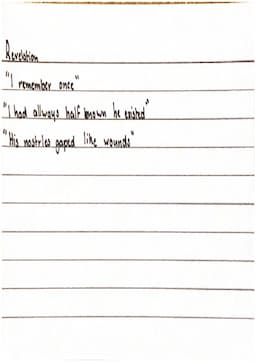 Revelation
"I remember once"
"I had allways half known he existed"
"His nostrles gaped like wounds"